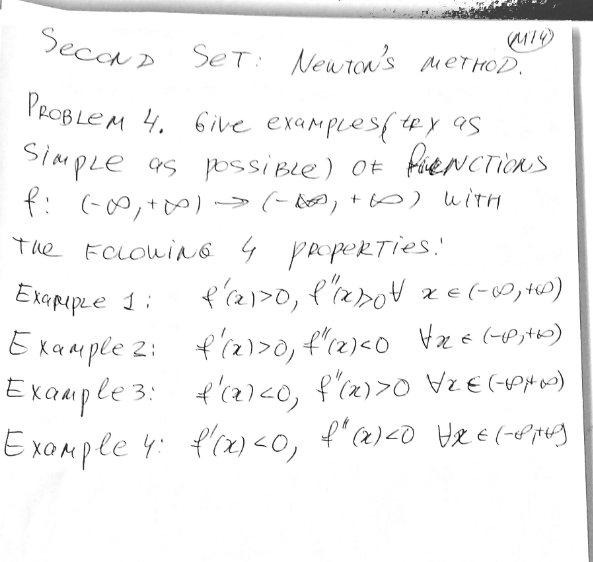 (M14)
SECOND SET: NEWTON'S METHOD.
PROBLEM 4. GIVE EXAMPLES (TRY AS
SIMPLE AS POSSIBLE) OF FUNCTIONS
f: (-∞, +∞) → (-∞, +∞) WITH
THE FOLOWING 4 PROPERTIES:
EXAMPLE 1: f'(x)>0, f''(x)>0 ∀ x ∈ (-∞, +∞)
Example 2: f'(x)>0, f''(x)<0 ∀x ∈ (-∞, +∞)
Example 3: f'(x)<0, f''(x)>0 ∀x ∈ (-∞, +∞)
Example 4: f'(x)<0, f''(x)<0 ∀x ∈ (-∞, +∞)